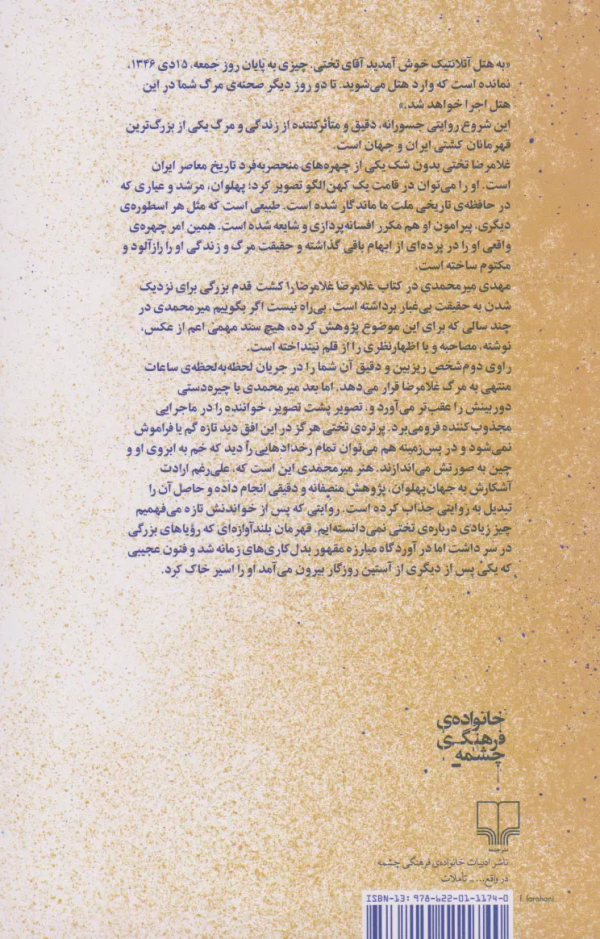 «به هتل آتلانتیک خوش آمدید آقای تختی. چیزی به پایان روز جمعه، ۱۵دی ۱۳۴۶،
نمانده است که وارد هتل می‌شوید. تا دو روز دیگر صحنه‌ی مرگ شما در این
هتل اجرا خواهد شد.»
این شروع روایتی جسورانه، دقیق و متأثرکننده از زندگی و مرگ یکی از بزرگ‌ترین
قهرمانان کشتی ایران و جهان است.
غلامرضا تختی بدون شک یکی از چهره‌های منحصربه‌فرد تاریخ معاصر ایران
است. او را می‌توان در قامت یک کهن‌الگو تصویر کرد؛ پهلوان، مرشد و عیاری که
در حافظه‌ی تاریخی ملت ما ماندگار شده است. طبیعی است که مثل هر اسطوره‌ی
دیگری، پیرامون او هم مکرر افسانه‌پردازی و شایعه شده است. همین امر چهره‌ی
واقعی او را در پرده‌ای از ابهام باقی گذاشته و حقیقت مرگ و زندگی او را رازآلود و
مکتوم ساخته است.
مهدی میرمحمدی در کتاب غلامرضا غلامرضا را کشت قدم بزرگی برای نزدیک
شدن به حقیقت بی‌غبار برداشته است. بی‌راه نیست اگر بگوییم میرمحمدی در
چند سالی که برای این موضوع پژوهش کرده، هیچ سند مهمی اعم از عکس،
نوشته، مصاحبه و یا اظهارنظری را از قلم نینداخته است.
راوی دوم‌شخص ریزبین و دقیق آن شما را در جریان لحظه‌به‌لحظه‌ی ساعات
منتهی به مرگ غلامرضا قرار می‌دهد. اما بعد میرمحمدی با چیره‌دستی
دوربینش را عقب‌تر می‌آورد و، تصویر پشت تصویر، خواننده را در ماجرایی
مجذوب‌کننده فرومی‌برد. پرتره‌ی تختی هرگز در این افق دید تازه گم یا فراموش
نمی‌شود و در پس‌زمینه هم می‌توان تمام رخدادهایی را دید که خم به ابروی او و
چین به صورتش می‌اندازند. هنر میرمحمدی این است که، علی‌رغم ارادت
آشکارش به جهان‌پهلوان، پژوهش منصفانه و دقیقی انجام داده و حاصل آن را
تبدیل به روایتی جذاب کرده است. روایتی که پس از خواندنش تازه می‌فهمیم
چیز زیادی درباره‌ی تختی نمی‌دانسته‌ایم. قهرمان بلندآوازه‌ای که رؤیاهای بزرگی
در سر داشت اما در آوردگاه مبارزه مقهور بدل‌کاری‌های زمانه شد و فنون عجیبی
که یکی پس از دیگری از آستین روزگار بیرون می‌آمد او را اسیر خاک کرد.
خانواده‌ی
فرهنگی
چشمه
نشر چشمه
ناشر ادبیات خانواده‌ی فرهنگی چشمه
در واقع... ـ تأملات
ISBN-13: 978-622-01-1174-0
f. farahani